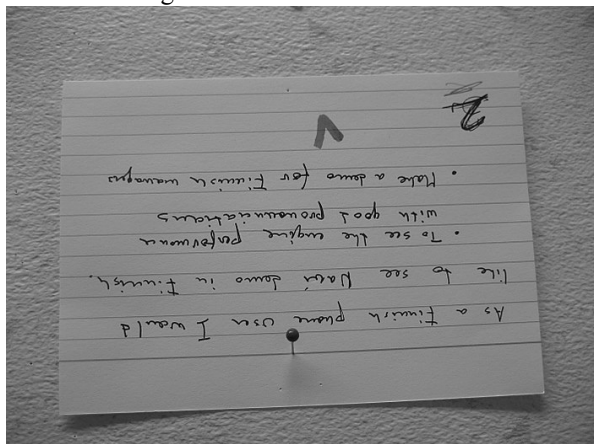 As a Finnish phone user I would
like to see Navi demo in Finnish.
• To see the engine performance
with good pronounciations
• Make a demo for Finnish managers
2